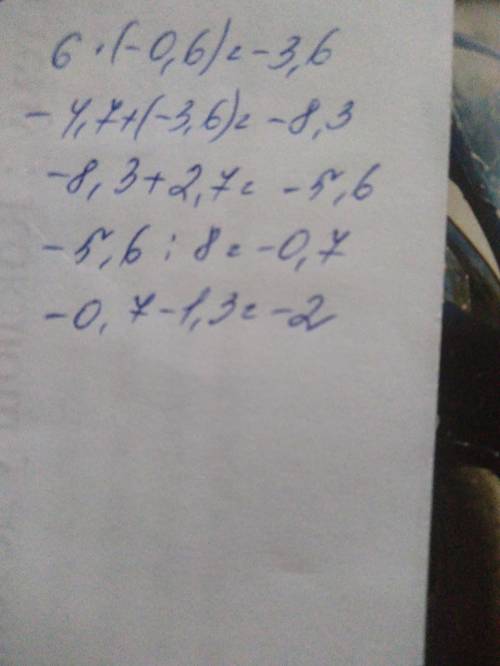 6 · (-0,6) = -3,6
-4,7+(-3,6) = -8,3
-8,3+2,7 = -5,6
-5,6 : 8 = -0,7
-0,7-1,3 = -2